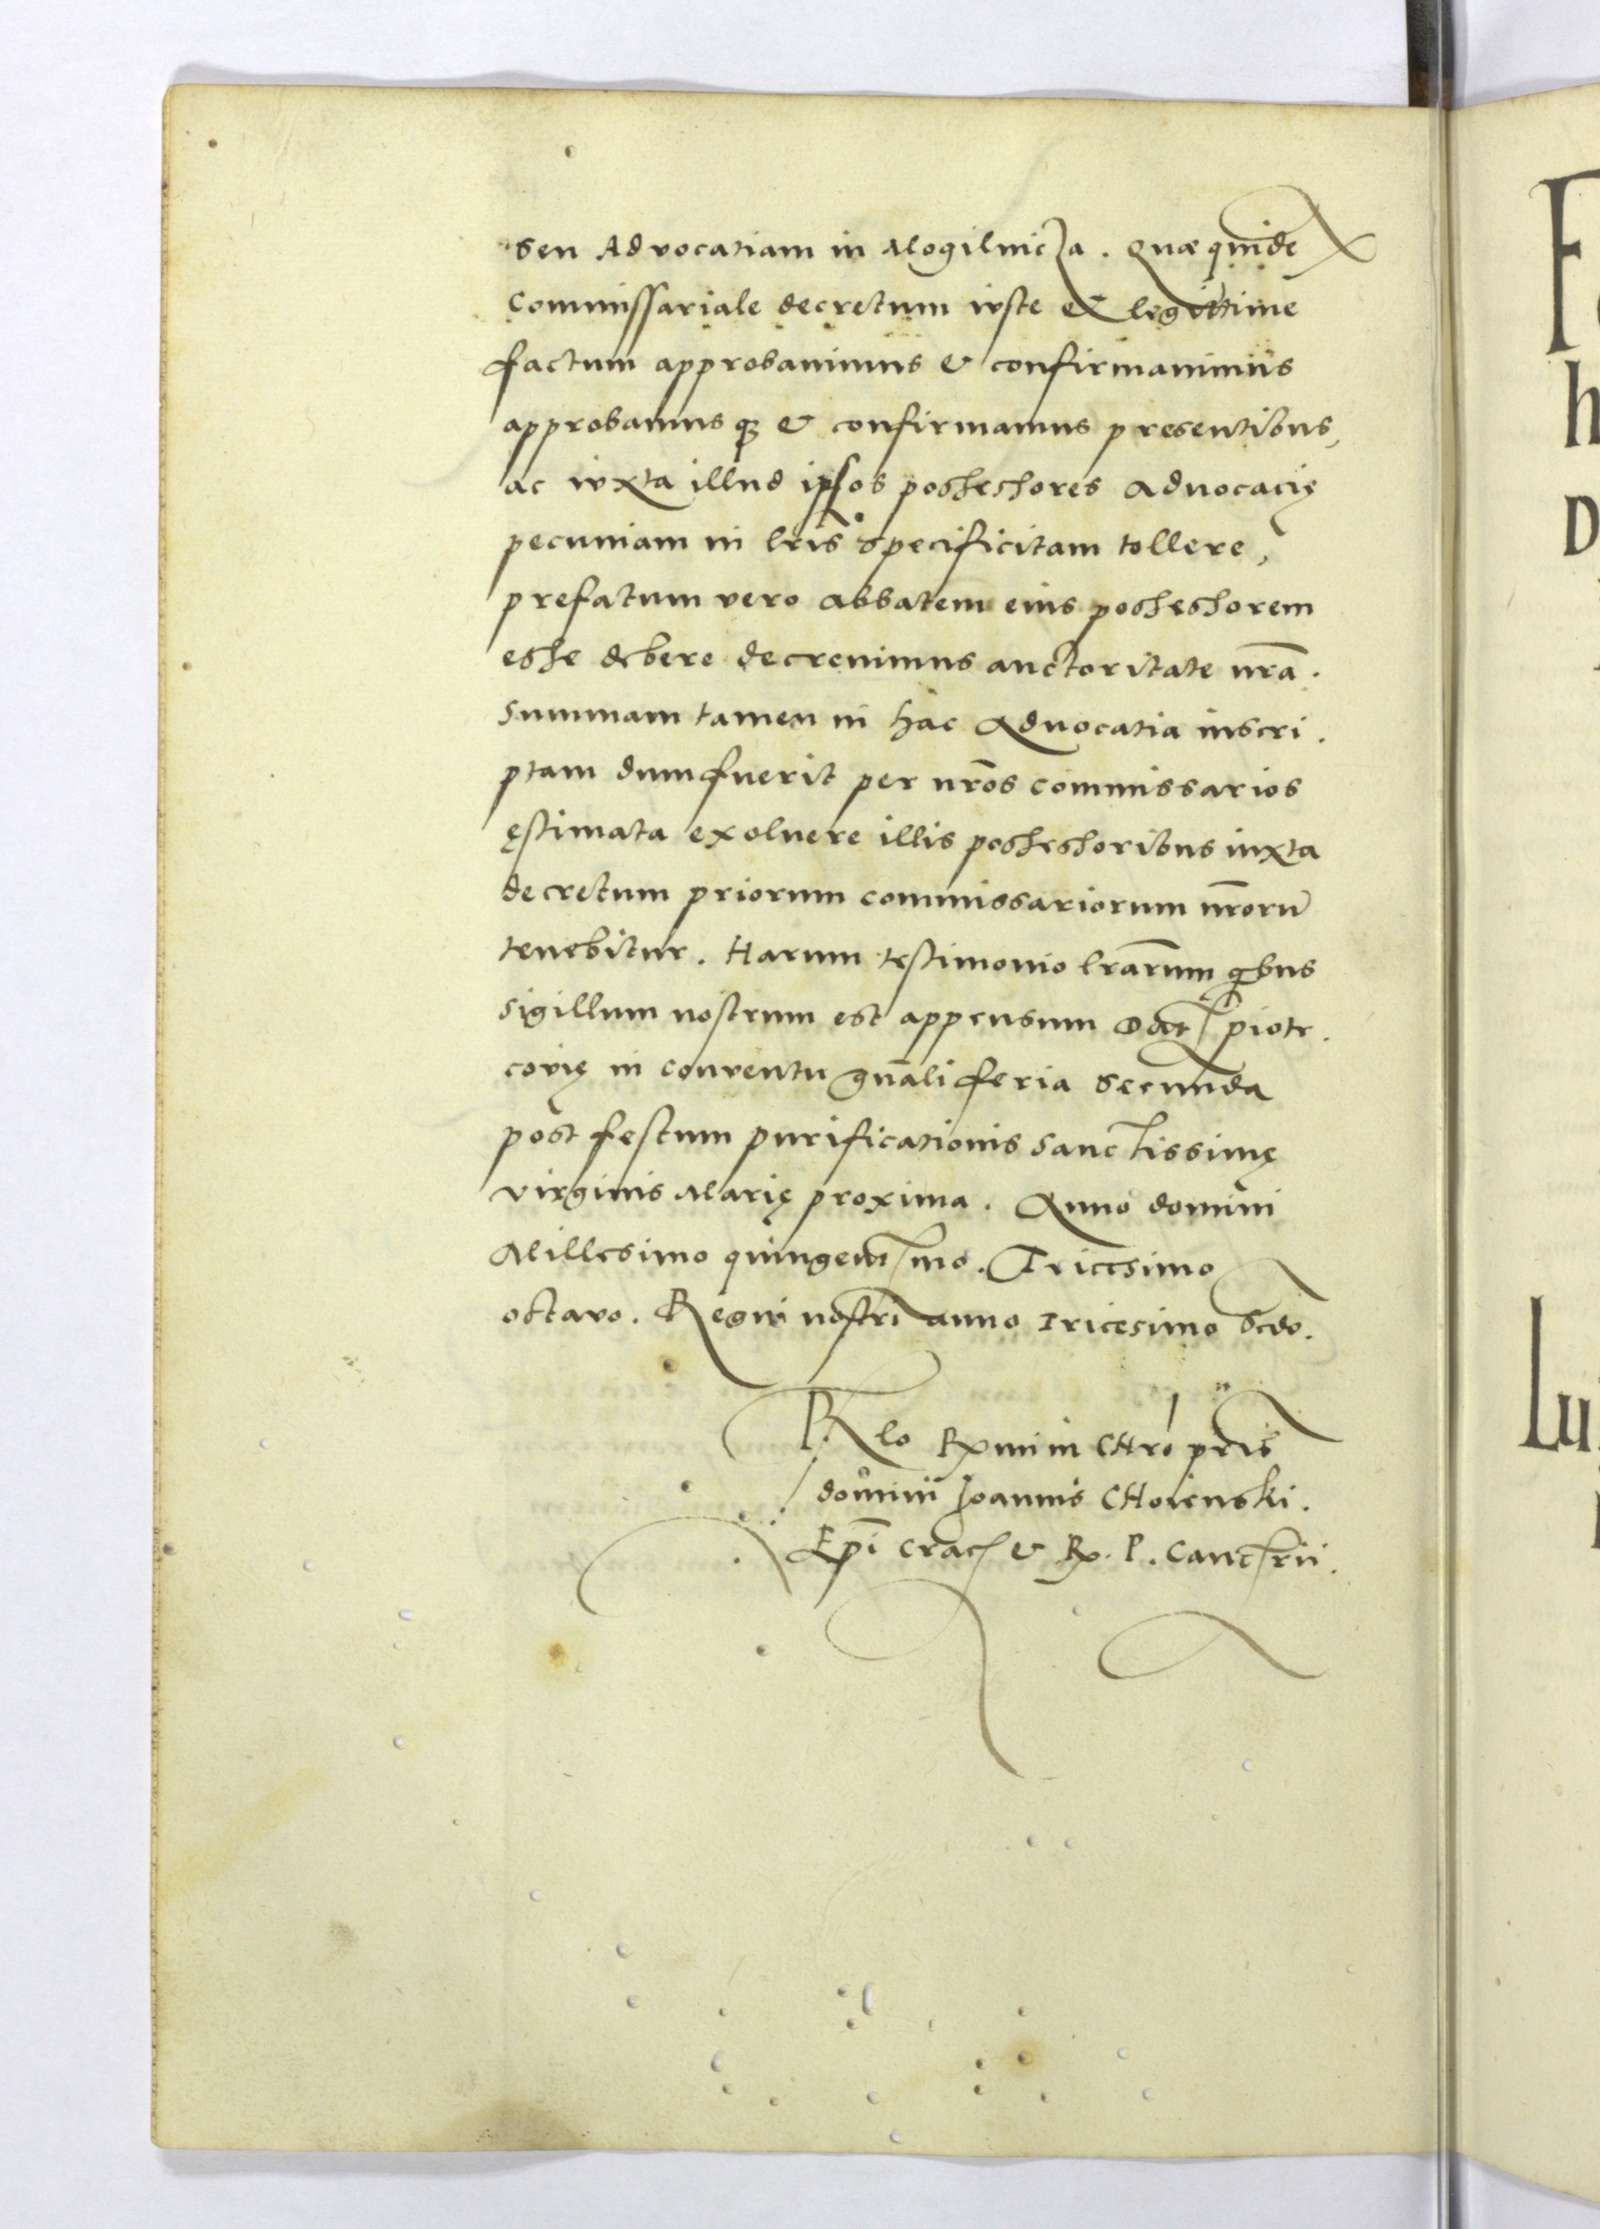 seu Advocatiam in Mogilnicza. Quæ quidē
Commissariale decretum iuste & legittime
factum approbavimus & confirmavimus
approbamusq3 & confirmamus presentibus,
ac iuxta illud ipsos possessores advocacię
pecuniam in lr̄is specificitam tollere,
prefatum vero abbatem eius possessorem
esse debere decrevimus auctoritate nr̄a.
Summam tamen in hac Advocatia inscri.
ptam dum fuerit per nr̄os commissarios
ęstimata exolvere illis possessoribus iuxta
decretum priorum commissariorum nr̄orū
tenebitur. Harum testimonio lr̄arum qbus
sigillum nostrum est appensum Dat piotr.
covię in conventu gn̄ali feria secunda
post festum purificationis sanctissimę
virginis Marię proxima. Anno domini
Millesimo quingentmo. Tricesimo
octavo. Regni nostri anno tricesimo scdo.
Rlo Rx̄mi in CHrō pr̄is
domini Joannis CHoienski.
Ep̄i Crac & R. P. Canctrii.
F
h
D
Lu